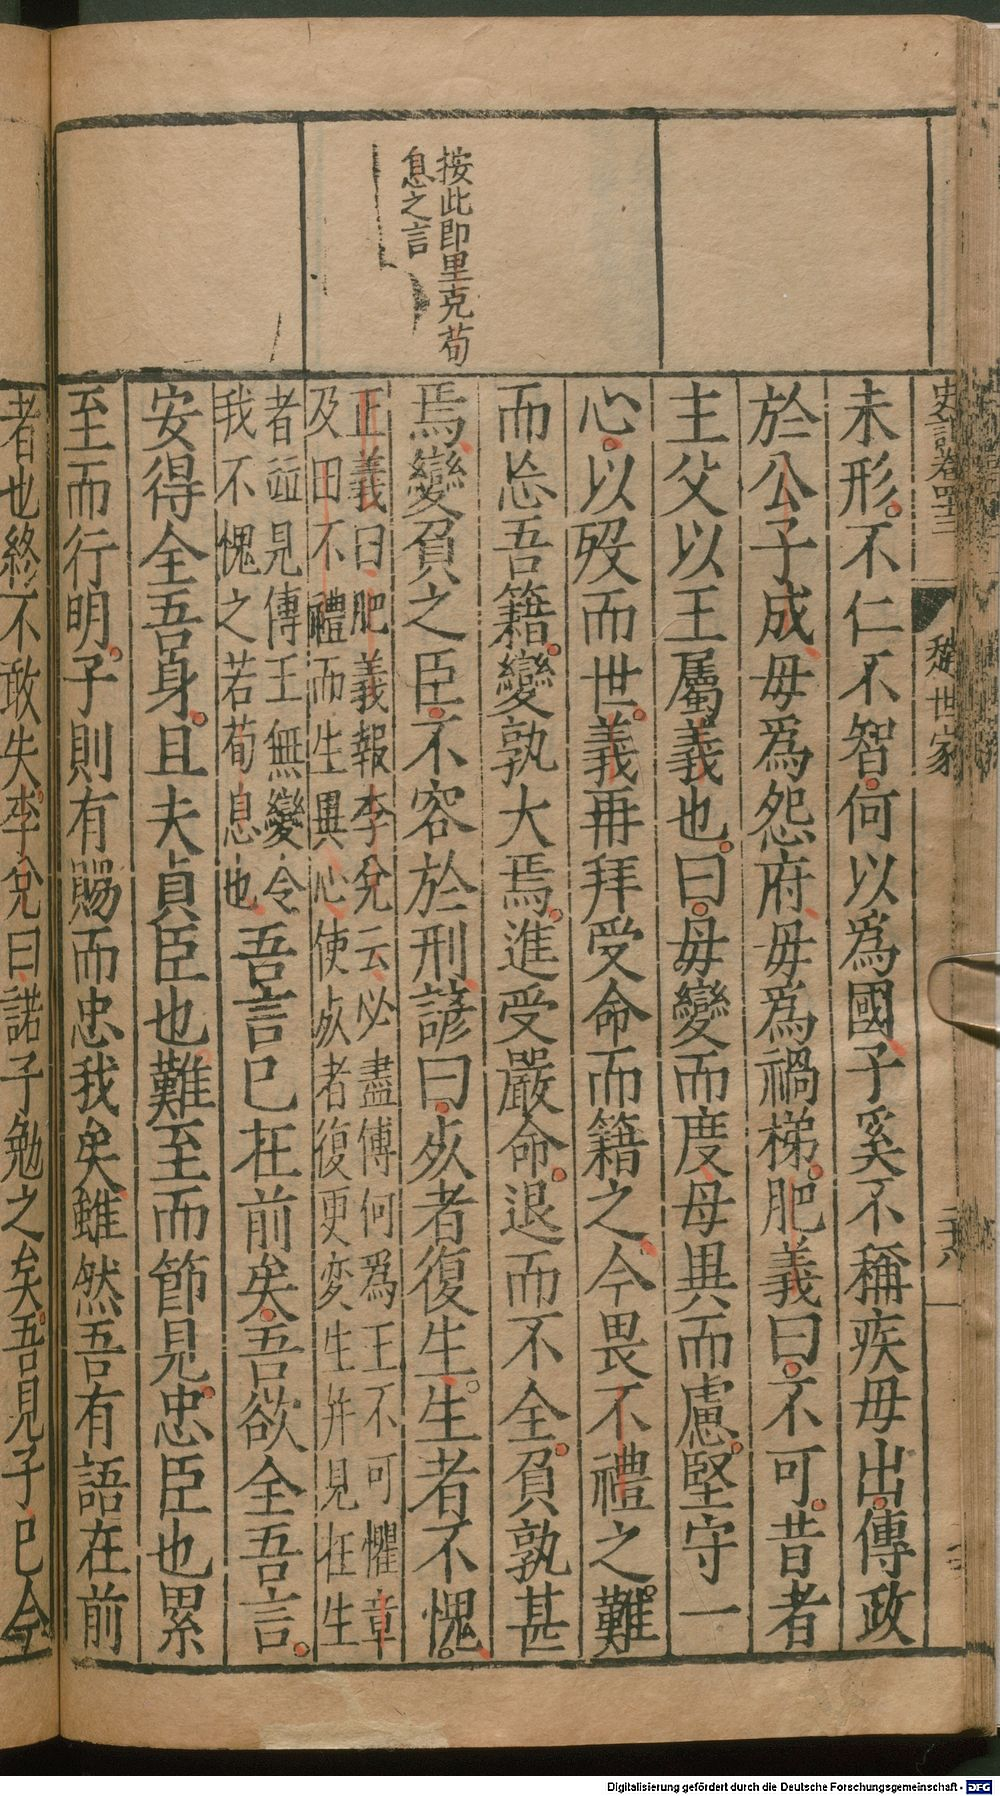 史記卷四十三
趙世家
二十八
按此即里克荀
息之言
未形不仁不智何以爲國子奚不稱疾毋出傳政
於公子成毋爲怨府毋爲禍梯肥義曰不可昔者
主父以王屬義也曰毋變而度毋異而慮堅守一
心以歿而世義再拜受命而籍之今畏不禮之難
而忘吾籍變孰大焉進受嚴命退而不全負孰甚
焉變負之臣不容於刑諺曰死者復生生者不愧
正義曰肥義報李兌云必盡傅何爲王不可懼章
及田不禮而生異心使死者復更変生并見在生
者並見傅王無變令
我不愧之若荀息也
吾言已在前矣吾欲全吾言
安得全吾身且夫貞臣也難至而節見忠臣也累
至而行明子則有賜而忠我矣雖然吾有語在前
者也終不敢失李兌曰諾子勉之矣吾見子已今
Digitalisierung gefördert durch die Deutsche Forschungsgemeinschaft - DFG